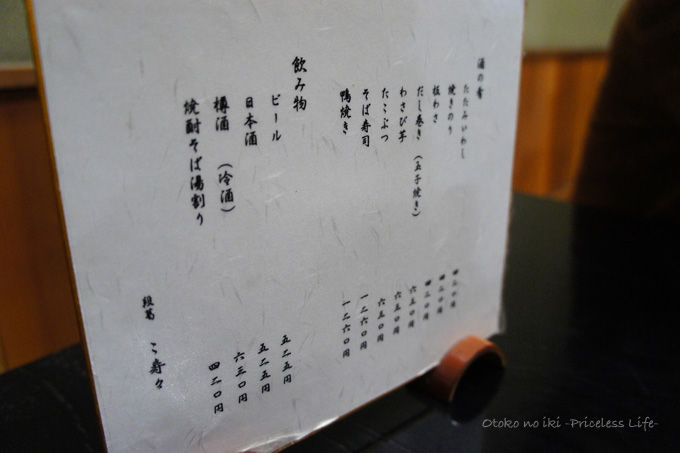 酒の肴
たたみいわし 四二〇円
焼きのり 四二〇円
板わさ 四二〇円
だし巻き(玉子焼き) 六三〇円
わさび芋 六三〇円
たこぶつ 六三〇円
そば寿司 一二六〇円
鴨焼き 一二六〇円
飲み物
ビール 五二五円
日本酒 五二五円
樽酒 (冷酒) 六三〇円
焼酎そば湯割り 四二〇円
段葛 こ寿々
Otoko no iki -Priceless Life-